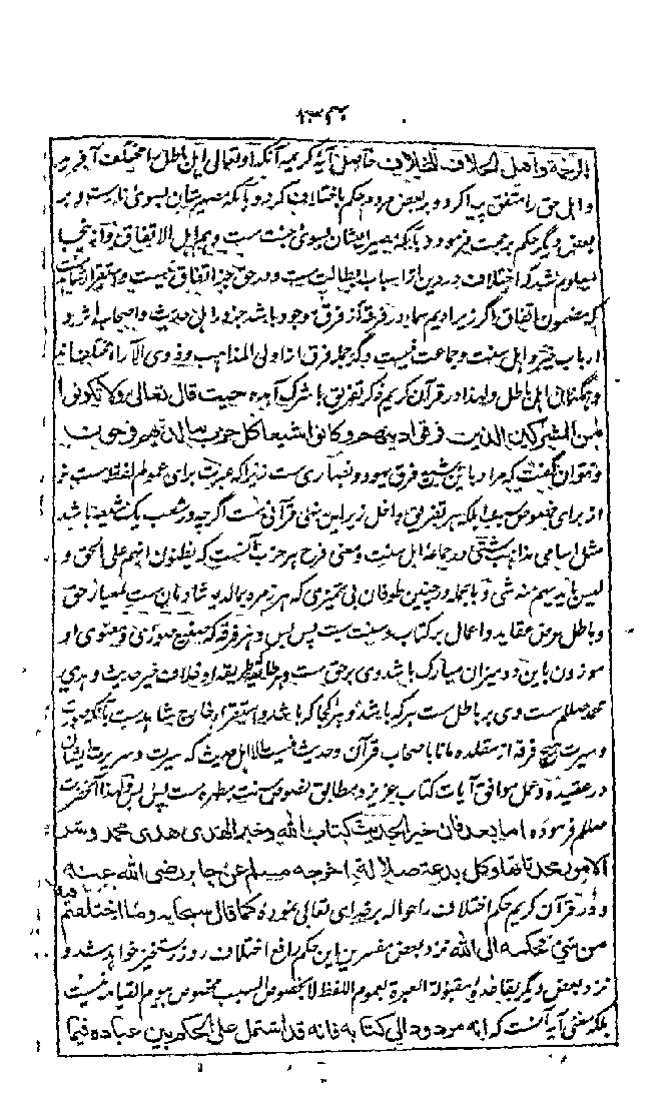 الرحمة واهل الخلاف للخلاف حاصل آیۀ کریمه آنکه او تعالی اهل باطل را مختلف آفرید
واهل حق را متفق پیدا کرد و بر بعض مردم حکم باختلاف کرد و بآنکه مصیرشان بسوی نارست و بر
بعض دیگر حکم برحمت فرمود و بآنکه مصیر ایشان بسوی جنت ست وهم اهل الاتفاق و از ینجا
معلوم شد که اختلاف در دین از اسباب بطالت ست و در حق جز اتفاق نیست و استقرا
که مضمون اتفاق اگر زیر ادیم سما در فرقۀ از فرق موجود باشد جز در اهل حدیث واصحاب اثر و
ارباب خبر و اهل سنت و جماعت نیست و دیگر جمله فرق از اولی المذاهب و ذوی الآراء
وهمگنان اهل باطل ولهذا در قرآن کریم ذکر تفریق با شرک آمده حیث قال تعالی ولا تکونوا
من المشرکین الذین فرقوا دینهم وکانوا شیعا کل حزب بما لدیهم فرحون
و نتوان گفت که مراد باین شیع فرق یهود و نصاری ست زیرا که عبرت برای عموم لفظ ست نه
از برای خصوص سبب بلکه هر تفریق داخل زیر این نهی قرآنی ست اگرچه در شعب یک شیعه باشد
مثل اسامی مذاهب شتی در جماعۀ اهل سنت ومعنی فرح هر حزب آنست که یظنون انهم علی الحق و
لیس بایدیهم منه شی و بالجمله در چنین طوفان بی تمیزی که هر زمره بما لدیه شادمان ست معیار حق
و باطل عرض عقاید و اعمال بر کتاب و سنت ست پس بس و هر فرقه که صنیع صوری و معنوی او
موزون باین دو میزان مبارک باشد وی بر حق ست و هر طائفه که طریقۀ او خلاف خیر حدیث و هدی
محمد صلعم ست وی بر باطل ست هر که باشد و هر کجا که باشد و استقرار خارج شاهد ست بآنکه
و سیرت هیچ فرقه از مقلده مانا باصحاب قرآن و حدیث نیست الا اهل حدیث که سیرت و سریرت ایشان
در عقیده و عمل موافق آیات کتاب عزیز و مطابق نصوص سنت مطهره ست پس بس ولهذا آنحضرت
صلعم فرموده اما بعد فان خیر الحدیث کتاب الله وخیر الهدی هدی محمد وشر
الامور محدثاتها وکل بدعة ضلالة اخرجه مسلم عن جابر رضی الله عنه
و در قرآن کریم حکم اختلاف را حواله بر خدای تعالی نموده کما قال سبحانه وما اختلفتم فیه
من شیء فحکمه الی الله نزد بعض مفسرین این حکم رافع اختلاف روز رستخیز خواهد شد و
نزد بعض دیگر بقاعدۀ مقبولۀ العبرة لعموم اللفظ لا بخصوص السبب مخصوص بیوم القیامه نیست
بلکه معنی آیه آنست که انه مردود الی کتابه فانه قد اشتمل علی الحکم بین عباده فیما